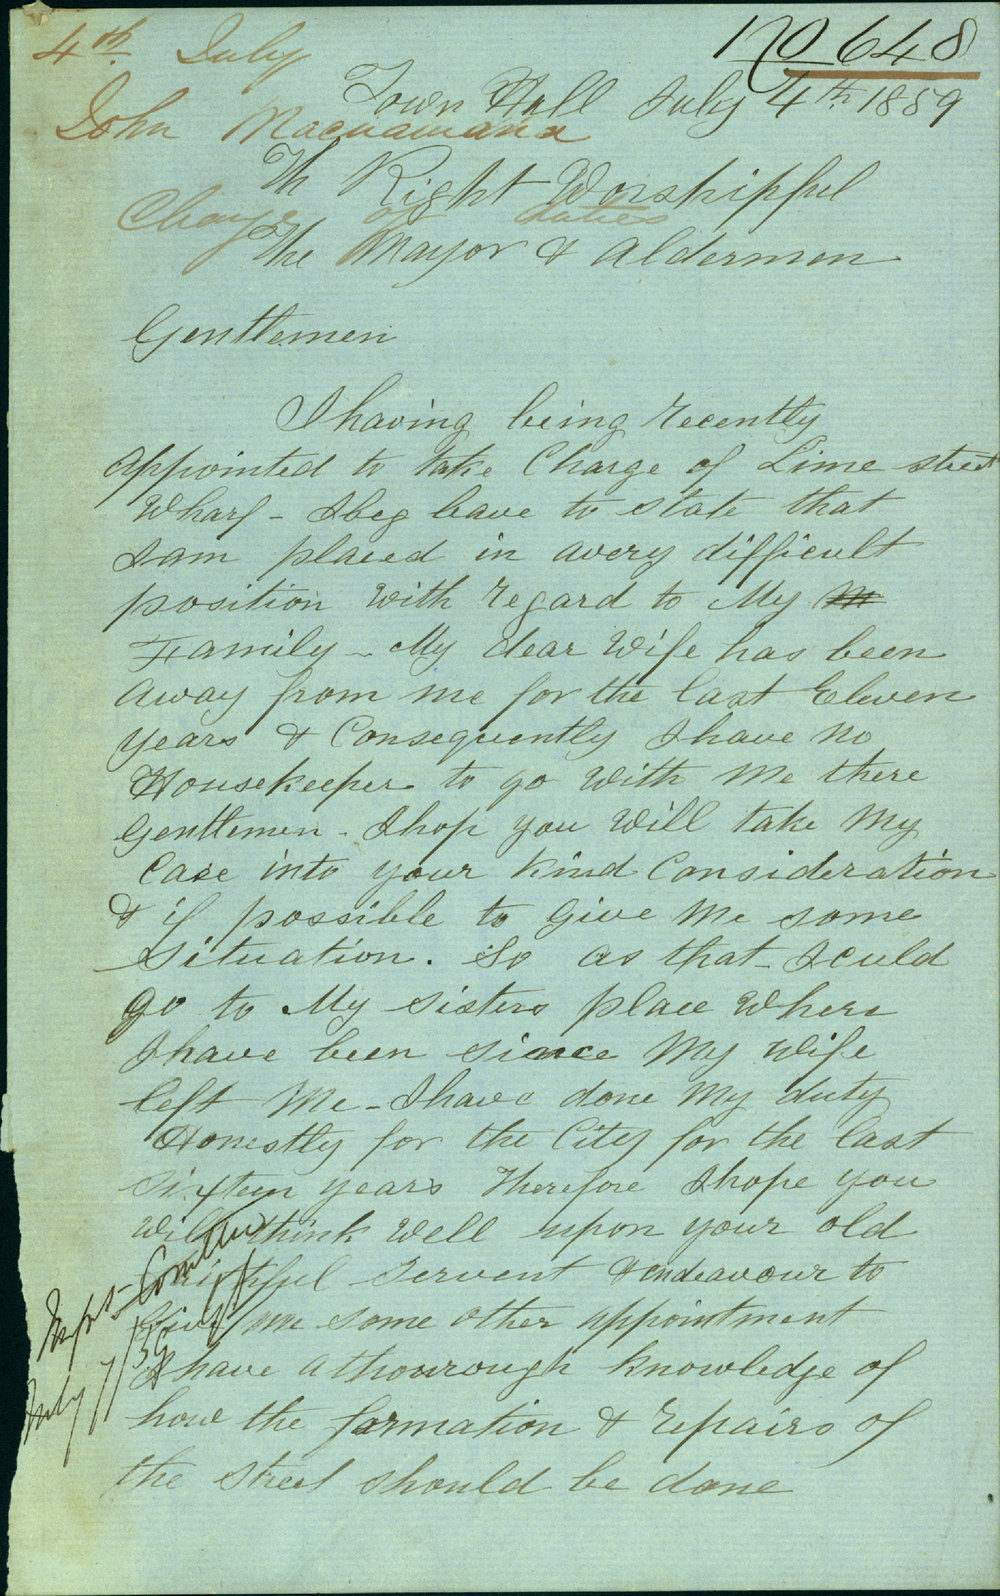 4th July
No 648
Town Hall July 4th 1859
John Macnamara
The Right Worshipful
Change of duties
The Mayor & Aldermen
Gentlemen
I having being recently
appointed to take Charge of Lime street
Wharf - I beg leave to state that
I am placed in a very difficult
position with regard to My M
Family - My dear Wife has been
away from me for the last Eleven
years & Consequently I have no
Housekeeper to go with me there
Gentlemen - I hop you Will take My
Case into your Kind Consideration
& if possible to Give Me some
situation. So as that - I culd
go to My sisters place Where
I have been since My wife
left Me - I have done My duty
Honestly for the City for the last
sixteen years Therefore I hope you
will think well upon your old
faithful servent & endeavour to
Give me some other appointment
I have a thourough Knowledge of
how the formation & repairs of
the street should be done
July 7/59